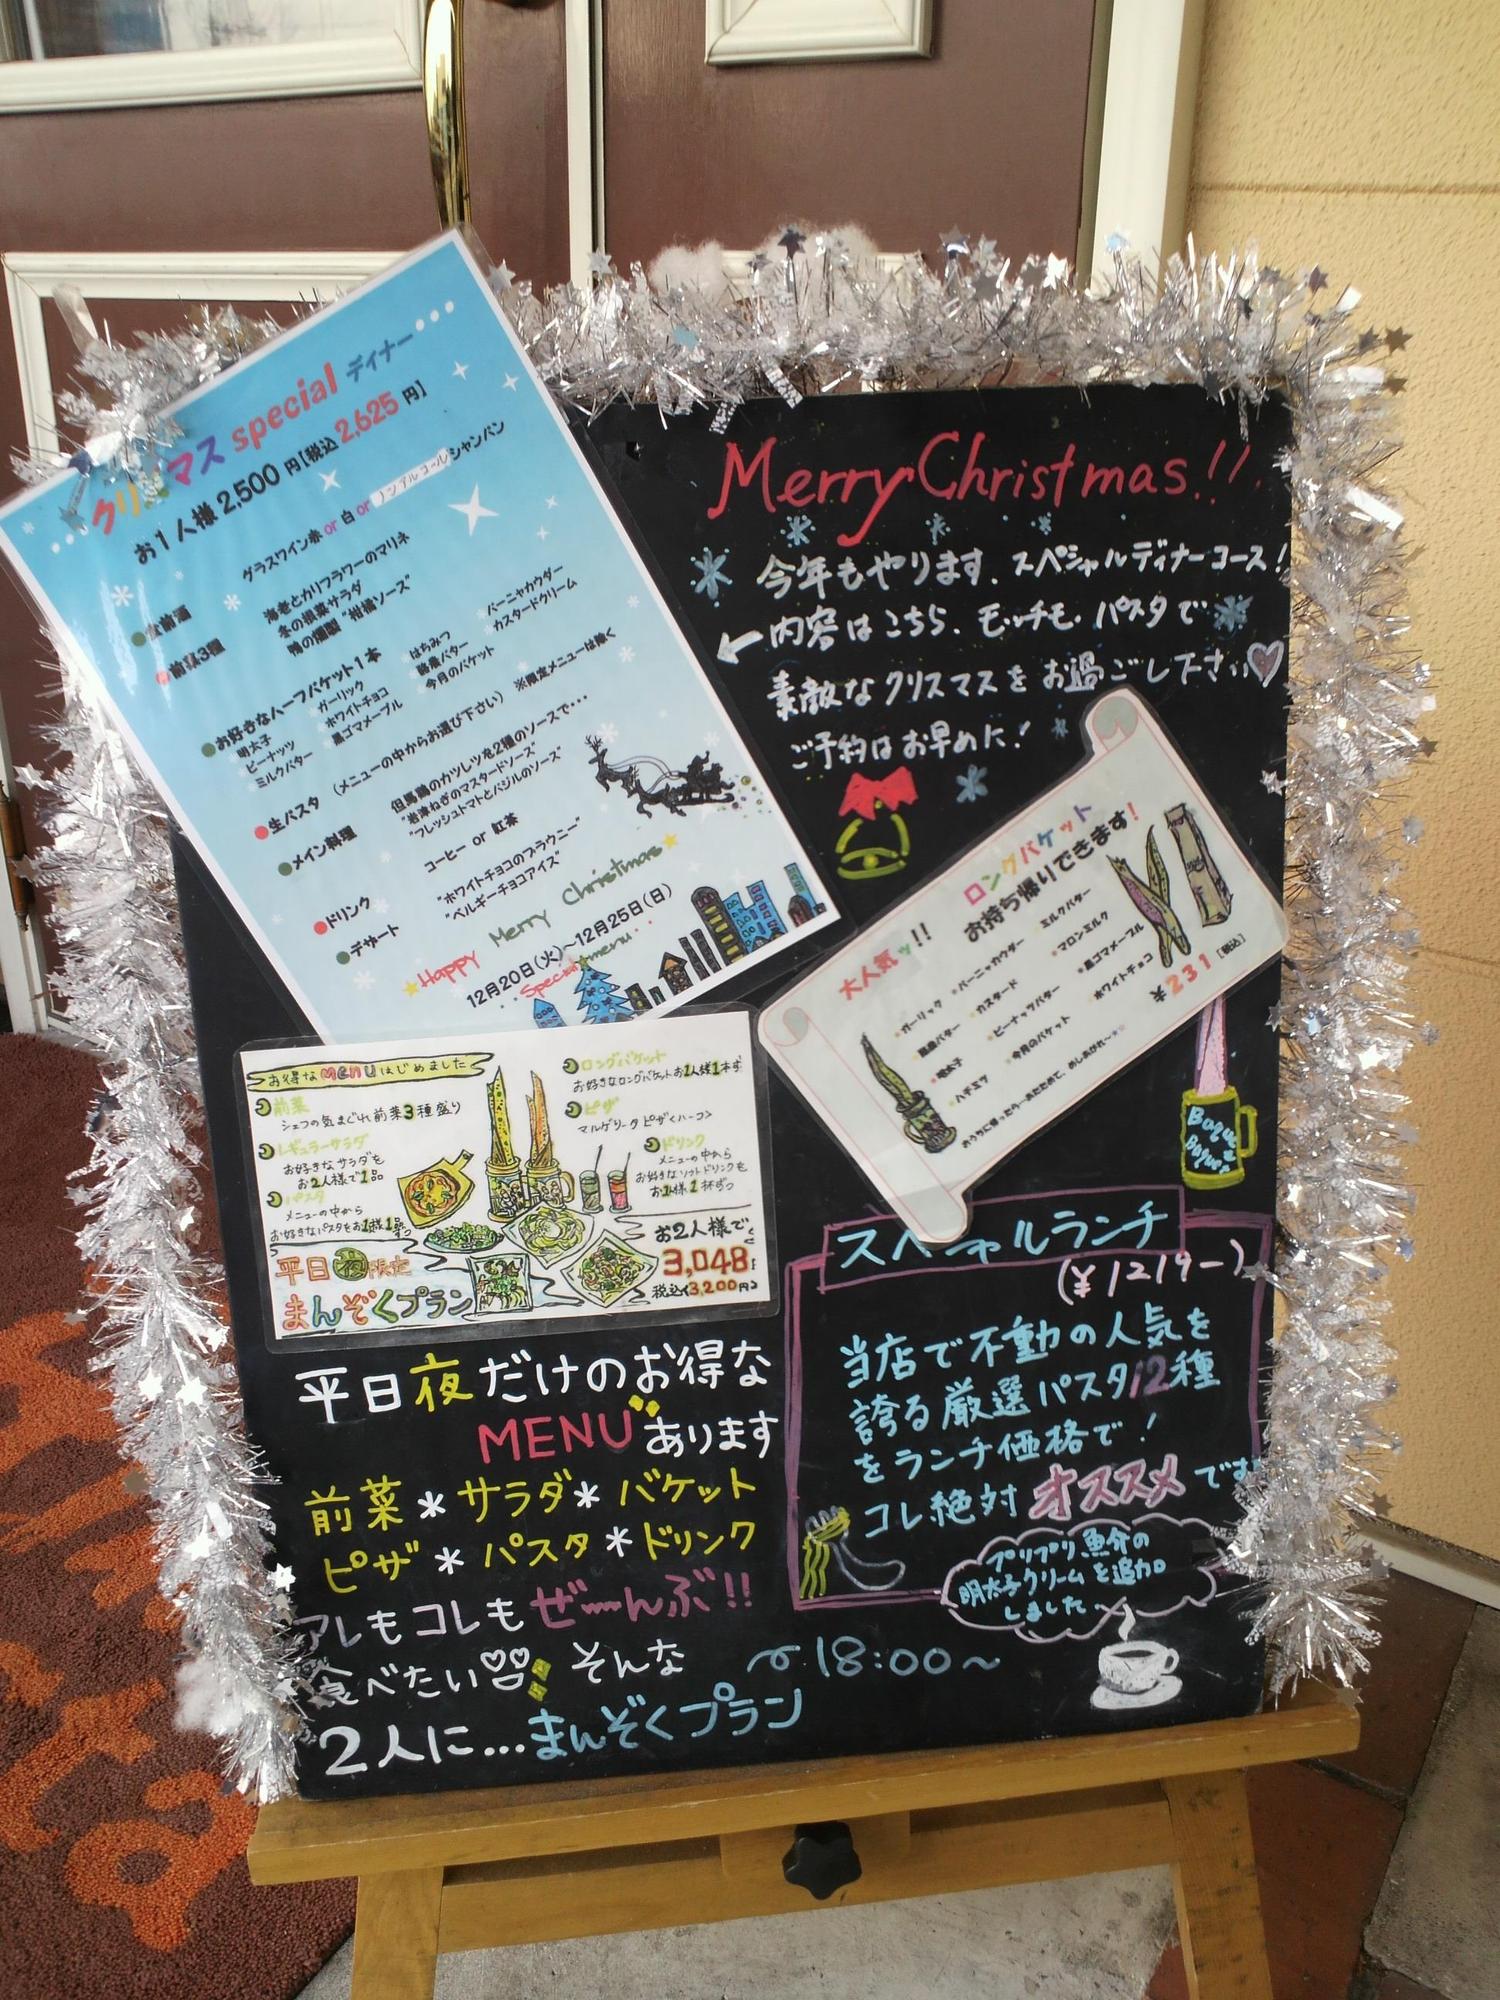 special ディナー
お1人様 2,500 円 [税込 2,625 円]
食前酒
グラスワイン赤 or 白 or ノンアルコールシャンパン
前菜3種
海老とカリフラワーのマリネ
冬の根菜サラダ
鴨の燻製 "柑橘ソース"
お好きなハーフバケット1本
明太子 ガーリック はちみつ バーニャカウダー
ピーナッツ ホワイトチョコ 胡椒バター カスタードクリーム
ミルクバター 黒ゴマメープル 今月のバケット
生パスタ (メニューの中からお選び下さい) ※限定メニューは除く
メイン料理
但馬鶏のカツレツを2種のソースで・・・
"岩津ねぎのマスタードソース"
"フレッシュトマトとバジルのソース"
ドリンク
コーヒー or 紅茶
デザート
"ホワイトチョコのブラウニー"
"ベルギーチョコアイス"
Happy Merry Christmas
12月20日(火)～12月25日(日)
Special menu
Merry Christmas!!
今年もやります、スペシャルディナーコース!
←内容はこちら、モッチモパスタで
素敵なクリスマスをお過ごし下さい♡
ご予約はお早めに!
大人気ッ!!
ロングバケット
お持ち帰りできます!
ガーリック バーニャカウダー ミルクバター
カスタード マロンミルク
明太子 ピーナッツバター 黒ゴマメープル
ハチミツ 今月のバケット ホワイトチョコ
¥231 [税込]
お得なmenuはじめました
前菜
シェフの気まぐれ前菜3種盛り
レギュラーサラダ
お好きなサラダを
お2人様で1品
パスタ
メニューの中から
お好きなパスタをお1人様1品
ロングバケット
お好きなロングバケットお1人様1本ずつ
ピザ
マルゲリータピザ<ハーフ>
ドリンク
メニューの中から
お好きなソフトドリンクを
お1人様1杯ずつ
平日夜限定
まんぞくプラン
お2人様で
3,048
税込 3,200円
平日夜だけのお得な
MENUあります
前菜*サラダ*バケット
ピザ*パスタ*ドリンク
アレもコレもぜーんぶ!!
食べたい そんな
2人に...まんぞくプラン
18:00～
スペシャルランチ
(¥1219-)
当店で不動の人気を
誇る厳選パスタ12種
をランチ価格で!
コレ絶対オススメです
プリプリ魚介の
明太子クリームを追加
しました